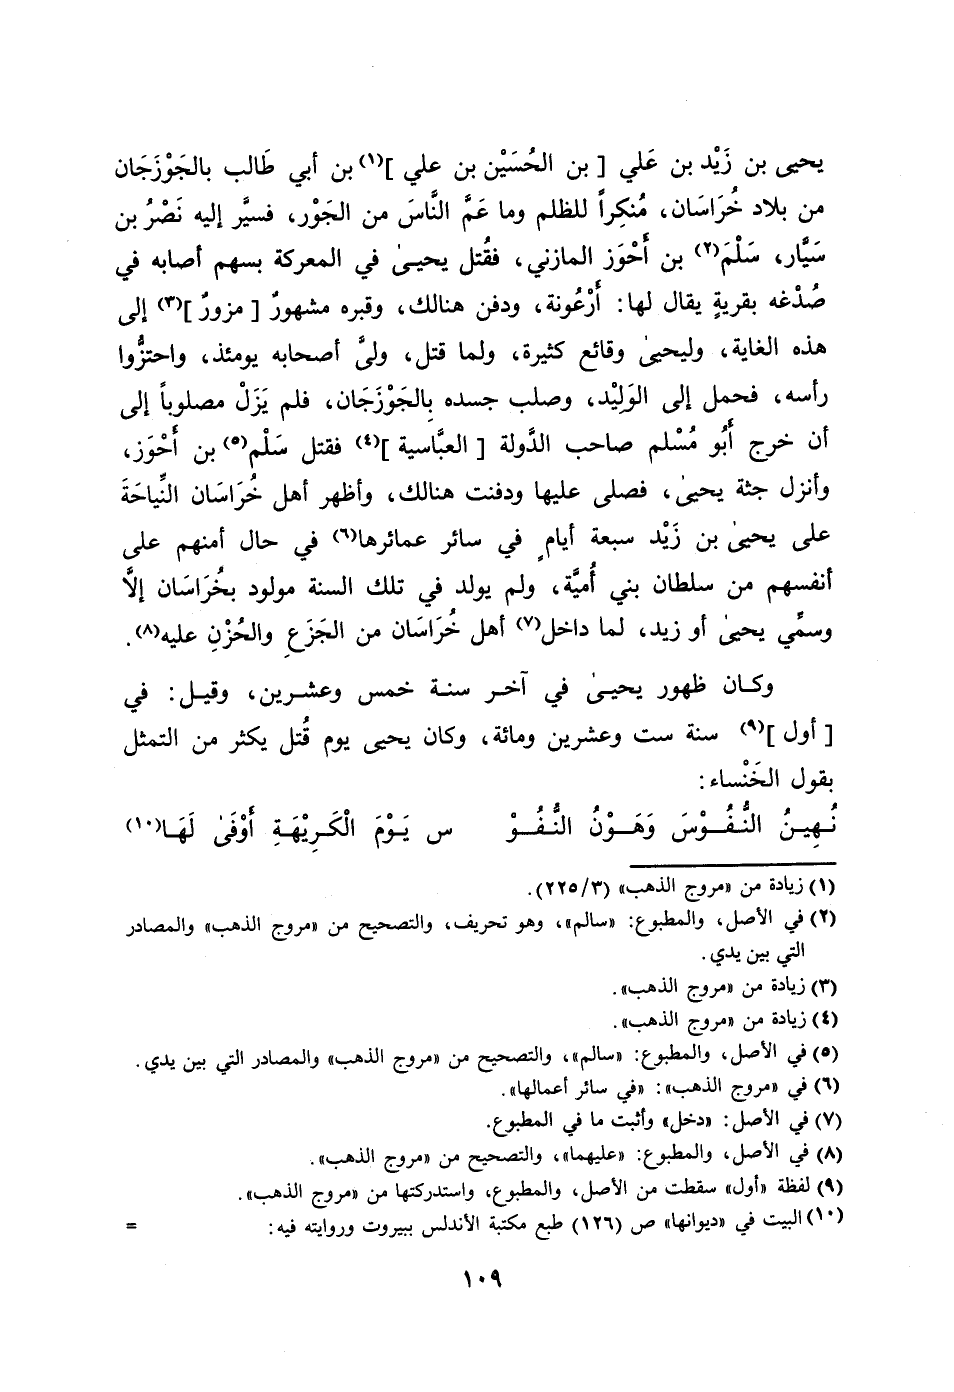 يحيى بن زَيْد بن عَلي [ بن الحُسَيْن بن علي ](١) بن أبي طَالب بالجَوْزَجَان
من بلاد خُرَاسَان، مُنكِراً للظلم وما عَمَّ النَّاسَ من الجَوْر، فسيَّر إليه نَصْرُ بن
سَيَّار، سَلْمَ(٢) بن أَحْوَز المازني، فقُتل يحيىٰ في المعركة بسهم أصابه في
صُدْغه بقريةٍ يقال لها: أَرْعُونة، ودفن هنالك، وقبره مشهورٌ [ مزورٌ ](٣) إلى
هذه الغاية، وليحيىٰ وقائع كثيرة، ولما قتل، ولىَّ أصحابه يومئذ، واحتزُّوا
رأسه، فحمل إلى الوَلِيْد، وصلب جسده بِالجَوْزَجَان، فلم يَزَلْ مصلوباً إلى
أن خرج أَبُو مُسْلم صاحب الدَّولة [ العبَّاسية ](٤) فقتل سَلْم(٥) بن أَحْوَز،
وأنزل جثة يحيىٰ، فصلى عليها ودفنت هنالك، وأظهر أهل خُرَاسَان النِّياحَةَ
على يحيىٰ بن زَيْد سبعة أيامٍ في سائر عمائرها(٦) في حال أمنهم على
أنفسهم من سلطان بني أُميَّة، ولم يولد في تلك السنة مولود بخُرَاسَان إلاَّ
وسمِّي يحيىٰ أو زيد، لما داخل(٧) أهل خُرَاسَان من الجَزَعِ والحُزْنِ عليه(٨).
وكان ظهور يحيىٰ في آخر سنة خمس وعشرين، وقيل: في
[ أول ](٩) سنة ست وعشرين ومائة، وكان يحيى يوم قُتل يكثر من التمثل
بقول الخَنْساء:
نُهِينُ النُّفُوْسَ وَهَوْنُ النُّفُوْ سِ يَوْمَ الْكَرِيْهَةِ أَوْفَىٰ لَهَا(١٠)
(١) زيادة من «مروج الذهب» (٣/٢٢٥).
(٢) في الأصل، والمطبوع: «سالم»، وهو تحريف، والتصحيح من «مروج الذهب» والمصادر
التي بين يدي.
(٣) زيادة من «مروج الذهب».
(٤) زيادة من «مروج الذهب».
(٥) في الأصل، والمطبوع: «سالم»، والتصحيح من «مروج الذهب» والمصادر التي بين يدي.
(٦) في «مروج الذهب»: «في سائر أعمالها».
(٧) في الأصل: «دخل» وأثبت ما في المطبوع.
(٨) في الأصل، والمطبوع: «عليهما»، والتصحيح من «مروج الذهب».
(٩) لفظة «أول» سقطت من الأصل، والمطبوع، واستدركتها من «مروج الذهب».
(١٠) البيت في «ديوانها» ص (١٢٦) طبع مكتبة الأندلس ببيروت وروايته فيه: =
١٠٩